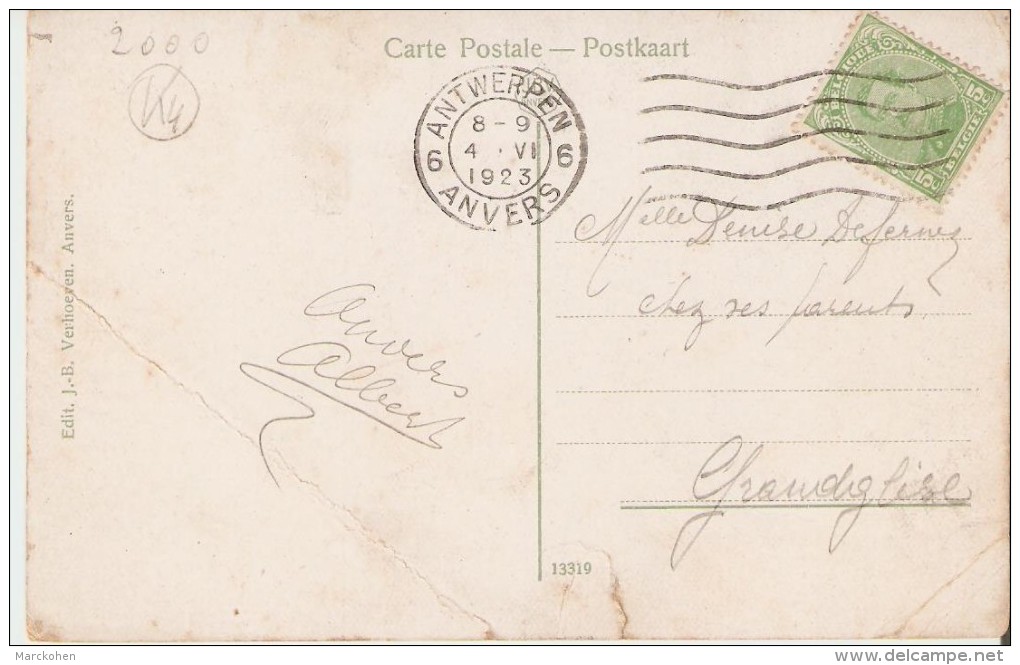 2000
K4
Carte Postale — Postkaart
ANTWERPEN
8-9
6 4 · VI 6
1923
ANVERS
BELGIQUE
5c 5c
BELGIË
Melle Denise Defernez
chez ses parents
Anvers
Albert
Grandiglise
Edit. J.-B. Verhoeven. Anvers.
13319
Marckohen
www.delcampe.net